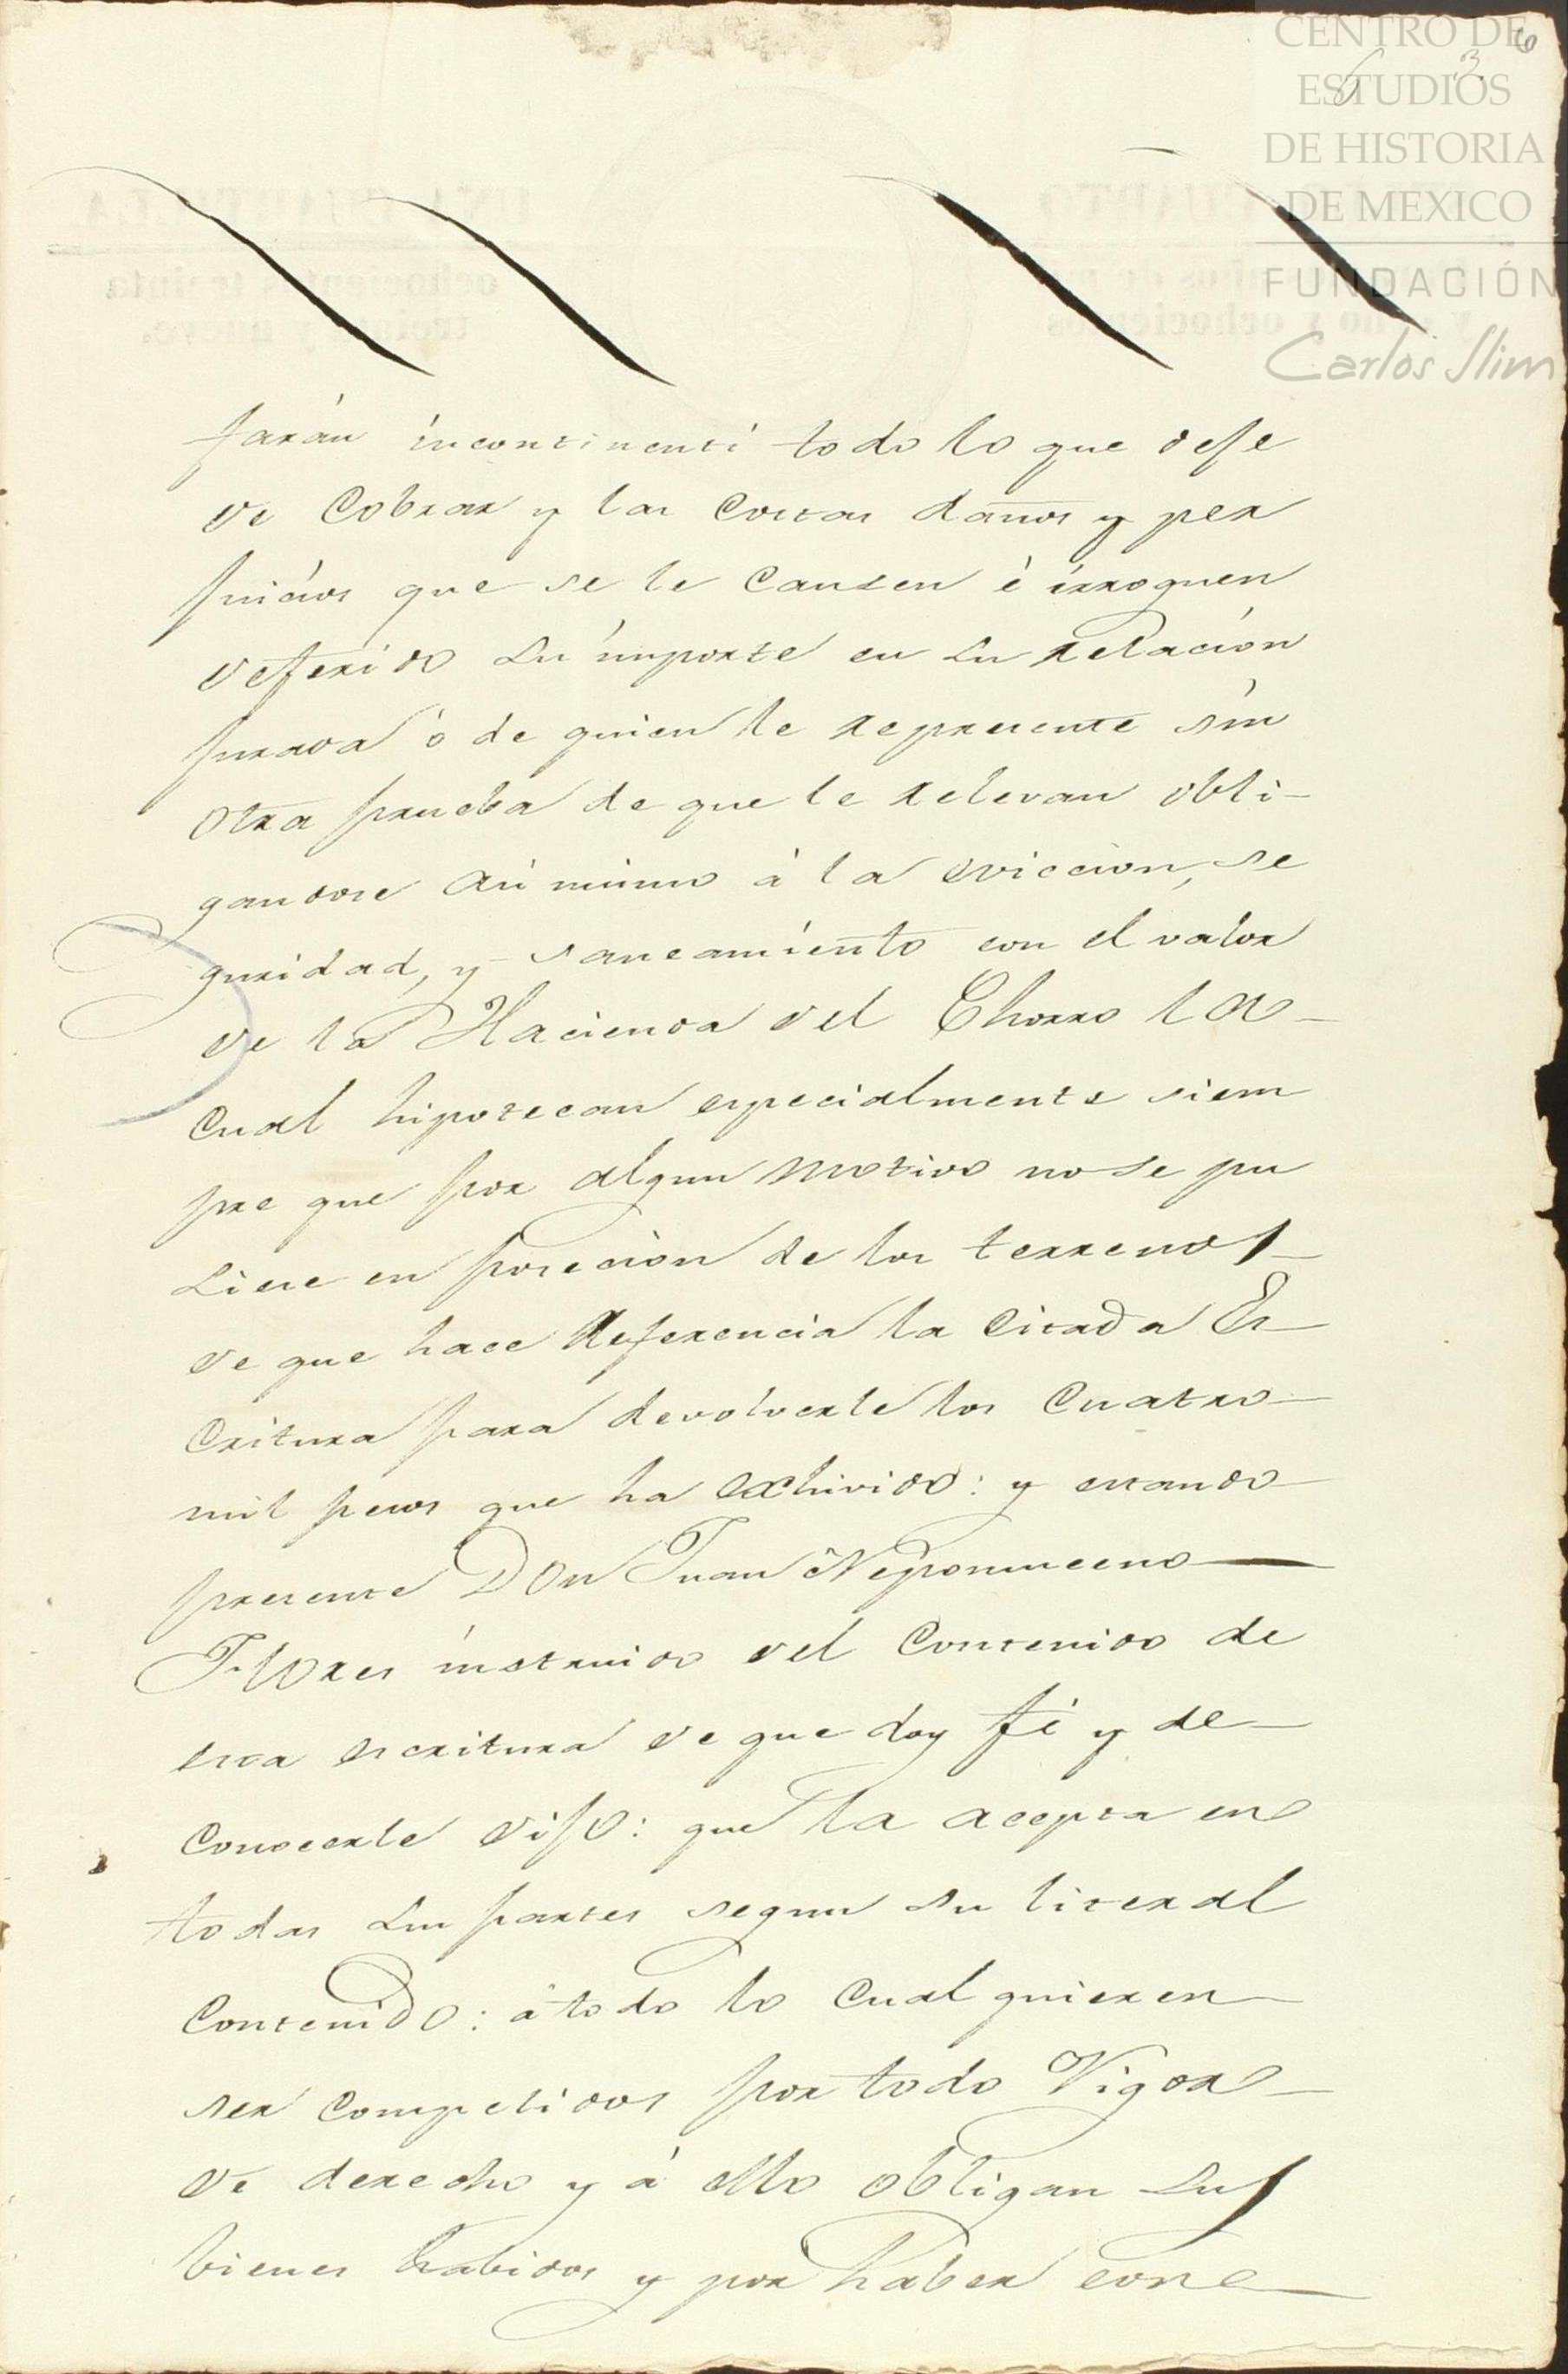 CENTRO DE
ESTUDIOS
DE HISTORIA
DE MEXICO
FUNDACIÓN
Carlos Slim
6
3
6
farán incontinenti todo lo que deje
de Cobrar y las Costas daños y per
juicios que se le Causen é irroguen
deferido su importe en su relacion
jurada ó de quien le represente sin
otra prueba de que le relevan obli-
gandose asi mismo á la eviccion, se
guridad, y saneamiento con el valor
de la Hacienda del Chorro la
Cual hipotecan especialmente siem
pre que por algun motivo no se pu
siere en posecion de los terrenos
de que hace Referencia la Citada Es
Critura para devolverle los Cuatro
mil pesos que ha exhivido: y estando
presente Don Juan Nepomuceno
Flores instruido del Contenido de
esta escritura de que doy fé y de
Conocerle dijo: que la acepta en
todas sus partes segun su literal
Contenido: á todo lo Cual quieren
ser Compelidos por todo Vigor
de derecho y á ello obligan sus
bienes habidos y por haber con